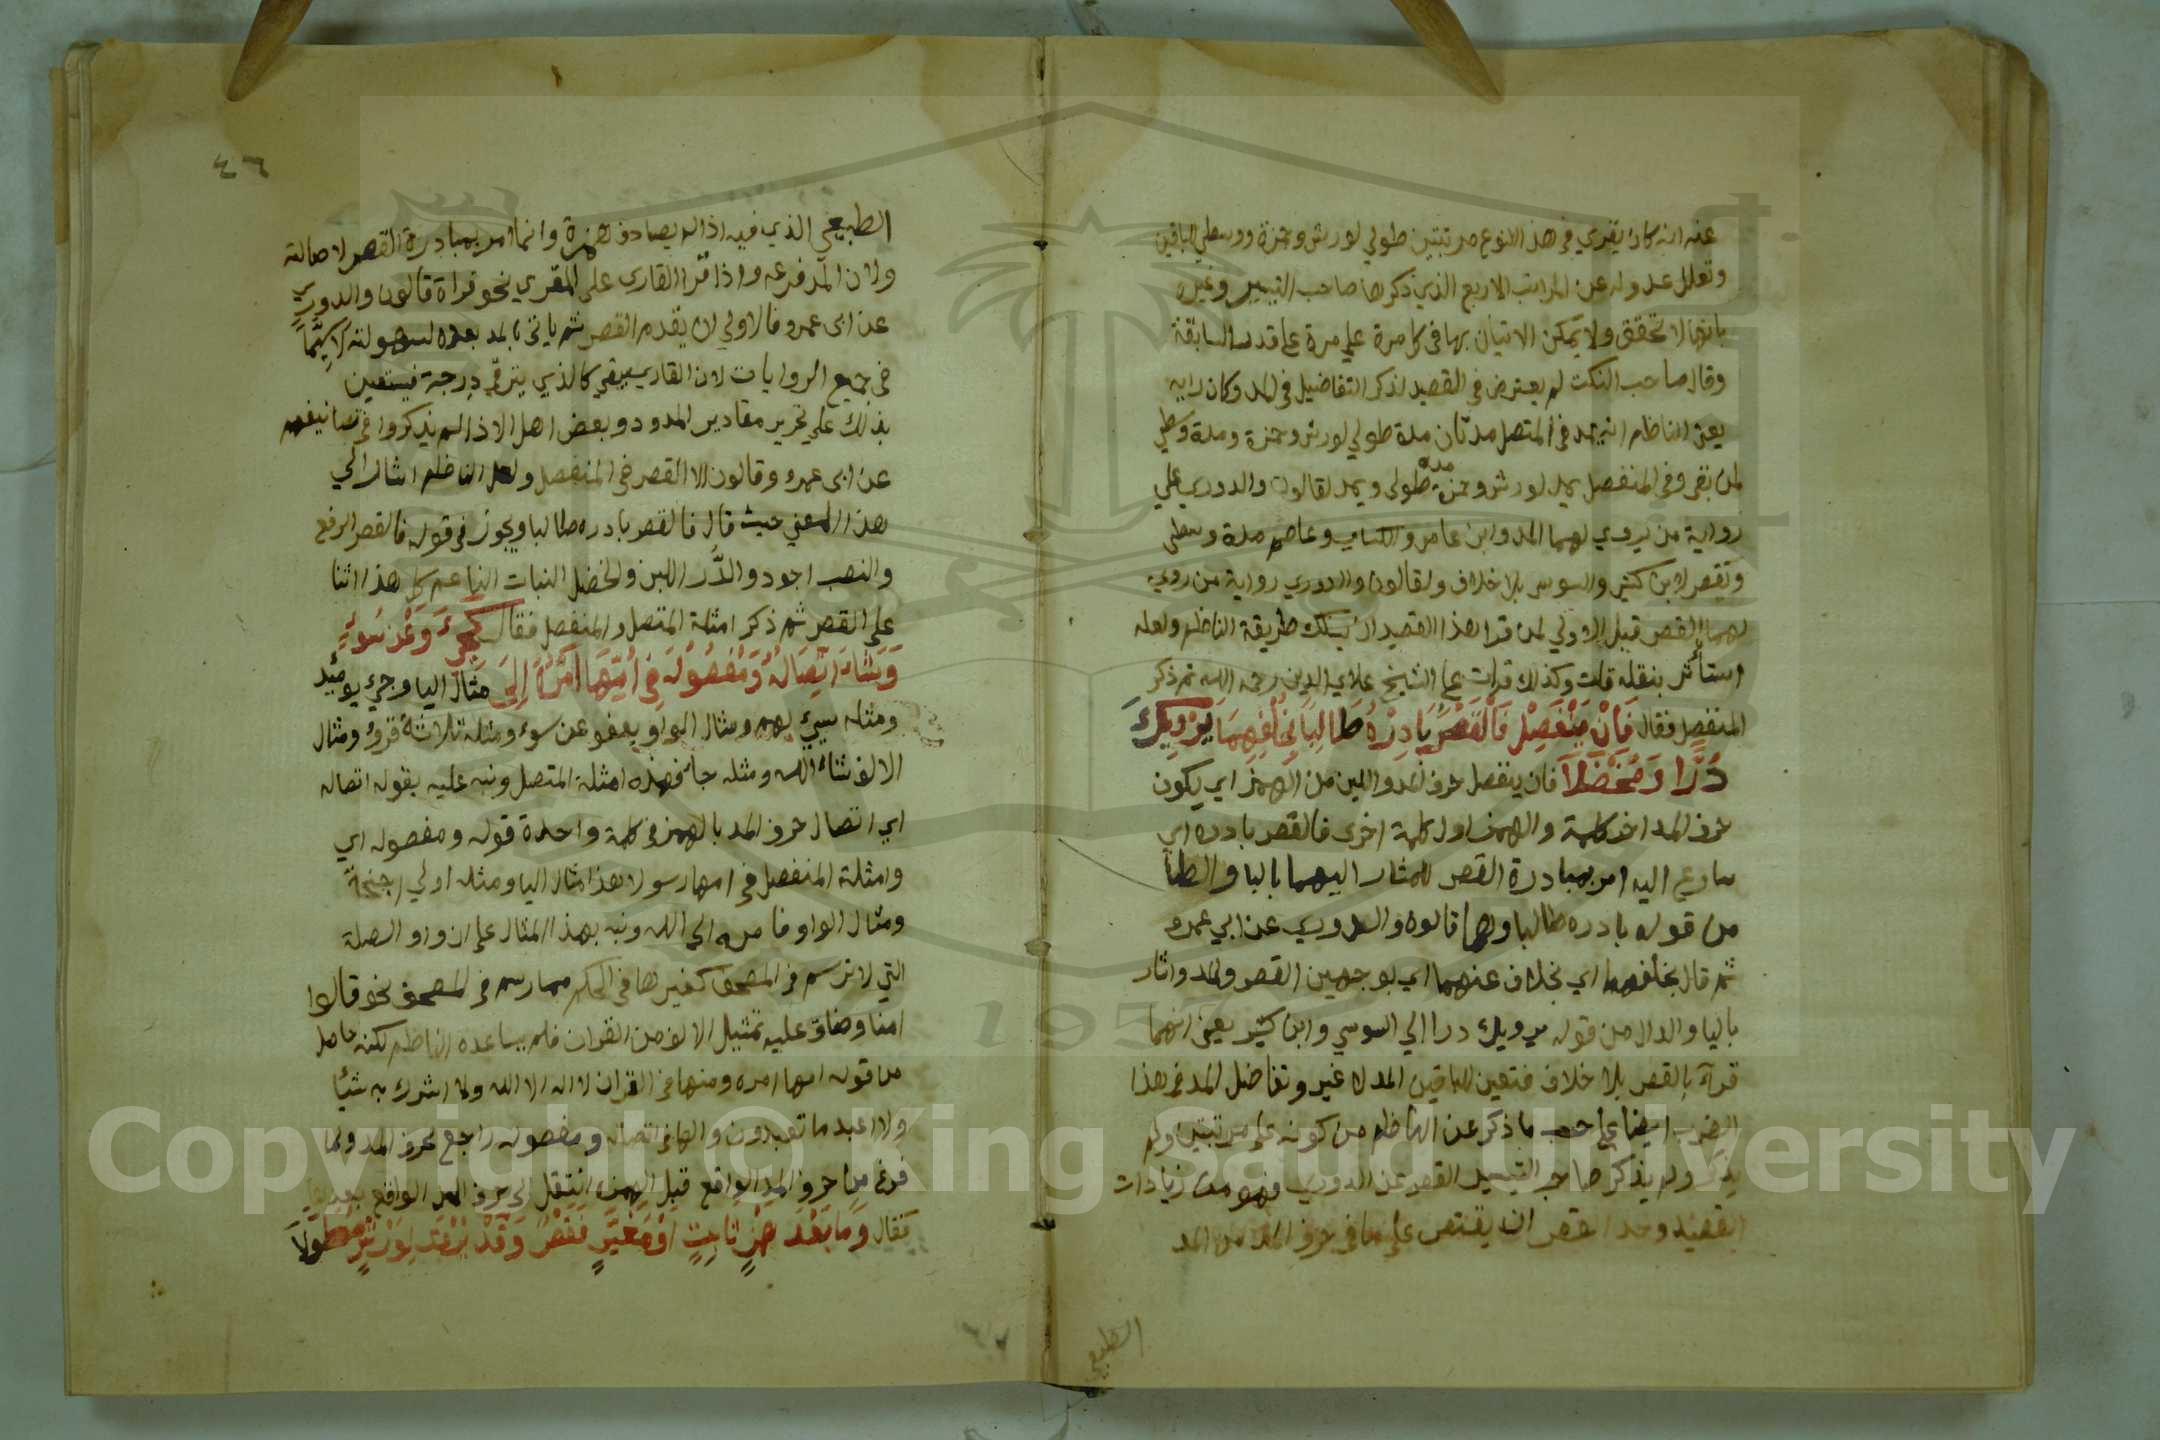 عنه انه كان يقري في هذا النوع مرتبتين طولي لورش وحمزة ووسطي للباقين
وتعلل عدوله عن المراتب الاربع الذي ذكرها صاحب التيسير وغيره
بانها لا تحقق ولا يمكن الاتيان بها في كل مرة علي مرة علي قدر السابقة
وقال صاحب النكت لم يعترض في القصيد لذكر التفاضيل في المد وكان رايه
يعني الناظم انه يمد في المتصل مدتان مدة طولي لورش وحمزة ومدة وسطي
لمن بقي وفي المنفصل يمد لورش وحمزة مدة طولي ويمد لقالون والدوري علي
رواية من يروي لهما المد وابن عامر والكسايي وعاصم مدة وسطي
ويقصر لابن كثير والسوسي بلا خلاف ولقالون والدوري رواية من روي
لهما القصر قيل الاولي لمن قرا هذا القصيد ان يسلك طريقة الناظم ولعله
استأثر بنقله قلت وكذلك قرات علي الشيخ علاي الدين رحمه الله ثم ذكر
المنفصل فقال فَاِنْ يَنْفَصِلْ فَالْقَصْرُ بَادِرْهُ طَالِبًا بِخُلْفِهِمَا يَرْوِيكَ
دَرًّا وَمُخْضَلَا فان ينفصل حرف المد واللين من الهمز اي يكون
حرف المد اخر كلمة والهمز اول كلمة اخرى فالقصر بادره اي
سارع اليه امر بمبادرة القصر للمشار اليهما بالبا والطا
من قوله بادره طالبا وهما قالون والدوري عن ابي عمرو
ثم قال بخلفهما اي بخلاف عنهما اي بوجهين القصر والمد واشار
باليا والدال من قوله يرويك درا الي السوسي وابن كثير يعني انهما
قرآ بالقصر بلا خلاف فتعين للباقين المد لا غير وتفاضل المد في هذا
الضرب ايضا علي حسب ما ذكر عن الناظم من كونه علي مرتبتين ولم
يذكر ولم يذكر صاحب التيسير القصر عن الدوري فهو من زيادات
القصيد وحد القصر ان يقتصر علي ما في حرف المد من المد
الطبيعي
٤٦
الطبيعي الذي فيه اذا لم يصادف همزة وانما امر بمبادرة القصر لاصالته
ولان المد فرعه واذا قرا القاري علي المقري نحو قراة قالون والدوري
عن ابي عمرو فالاولي ان يقدم القصر ثم ياتي بالمد بعده لسهولته لا سِيَّمَا
في جميع الروايات لان القاري يبقي كالذي يترقي درجة فيستعين
بذلك علي تحرير مقادير المدود وبعض اهل الاداء لم يذكروا في تصانيفهم
عن ابي عمرو وقالون الا القصر في المنفصل ولعل الناظم اشار الي
هذا المعني حيث قال فالقصر بادره طالبا ويجوز في قوله فالقصر الرفع
والنصب اجود والدَّر اللبن والخضل النبات الناعم كل هذا اثنا
علي القصر ثم ذكر امثلة المتصل والمنفصل فقال كَجِيءَ وَعَنْ سُوءٍ
وَشَاءَ اتِّصَالُهُ وَمَفْصُولُهُ فِي اُمِّهَا اَمْرُهُ اِلَي مثال اليا وجيء يوميذ
ومثله سيء بهم ومثال الواو يعفو عن سوء ومثله ثلاثة قروء ومثال
الالف شاء الله ومثله جا فهذه امثلة المتصل ونبه عليه بقوله اتصاله
اي اتصال حرف المد بالهمز في كلمة واحدة قوله ومفصوله اي
وامثلة المنفصل في امها رسولا هذا مثال اليا ومثله اولي اجنحة
ومثال الواو فامره الي الله ونبه بهذا المثال علي ان واو الصلة
التي لا ترسم في المصحف كغيرها في الحكم مما رسم في المصحف نحو قالوا
امنا وضاق عليه تمثيل الالف من القران فلم يساعده الناظم لكنه حاصل
من قوله امها امره ومنها في القران لا اله الا الله ولا اشرك به شيئا
ولا اعبد ما تعبدون والها في اتصاله ومفصوله راجع لحرف المد ولما
فرغ من حرف المد الواقع قبل الهمزة انتقل الي حرف المد الواقع بعدها
فقال وَمَا بَعْدَ هَمْزٍ ثَابِتٍ اَوْ مُغَيَّرٍ فَقَصْرٌ وَقَدْ يُرْوَي لِوَرْشٍ مُطَوَّلَا
Copyright © King Saud University
1957